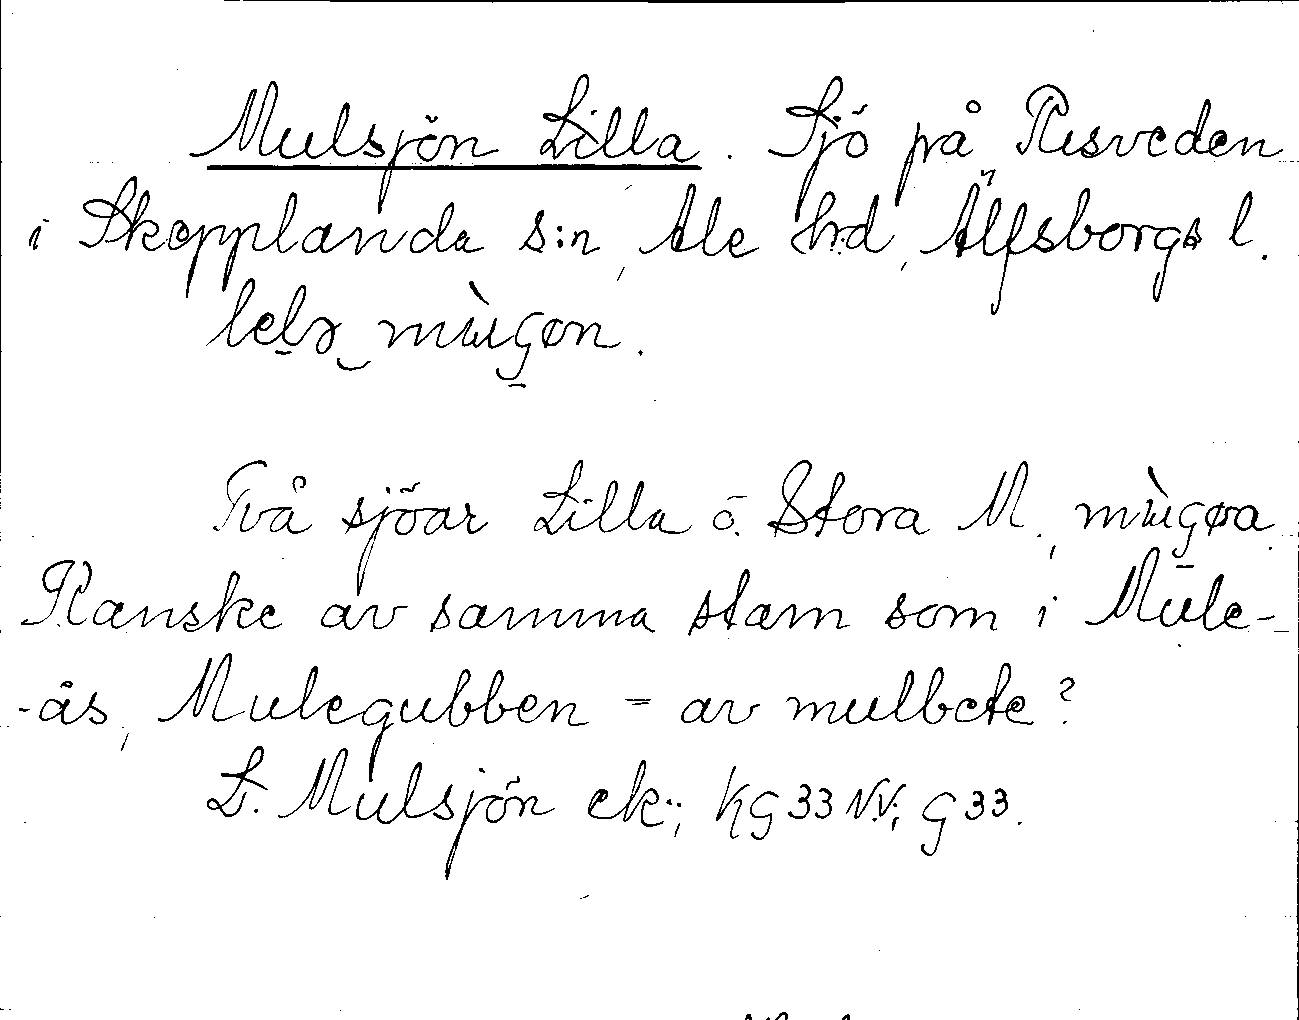 Mulsjön Lilla. Sjö på Risveden
i Skepplanda s:n, Ale hrd, Älfsborgs l.
Två sjöar Lilla o. Stora M.,
Kanske av samma stam som i Mule-
-ås, Mulegubben = av mulbete?
L. Mulsjön ek.; KG33NV; G33.